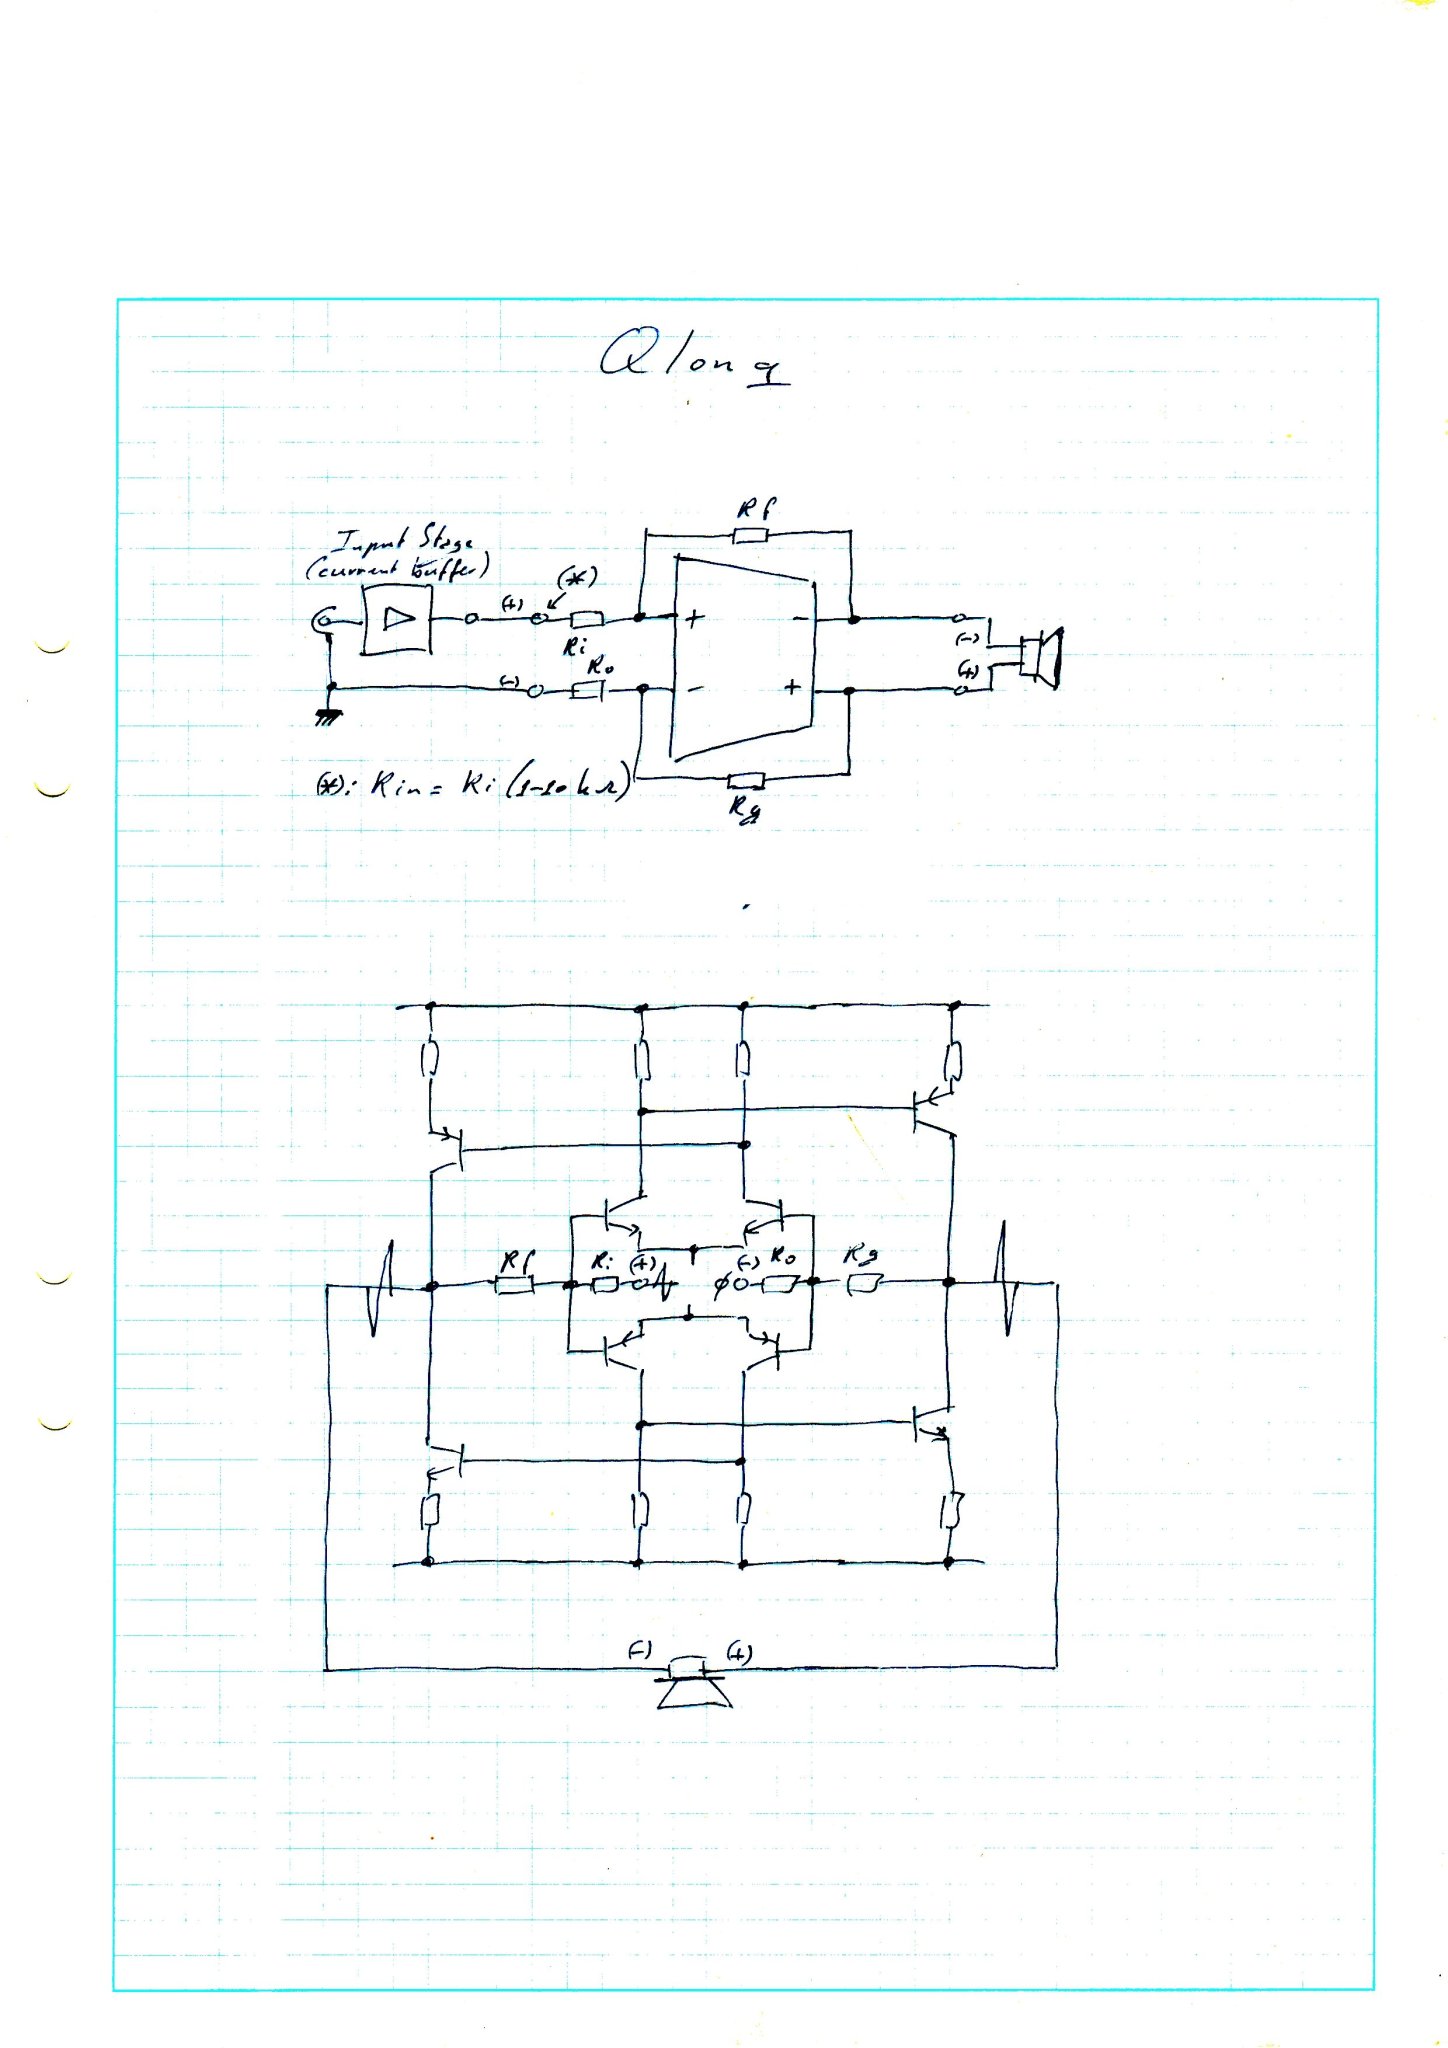 Qlong
Rf
Input Stage
(current buffer)
(*)
(+)
Ri
+
-
(-)
Ro
(-)
(+)
-
+
(*): Rin = Ri (1-10 kΩ)
Rg
Rf
Ri
(+)
(-)
Ro
Rg
φ
(-)
(+)